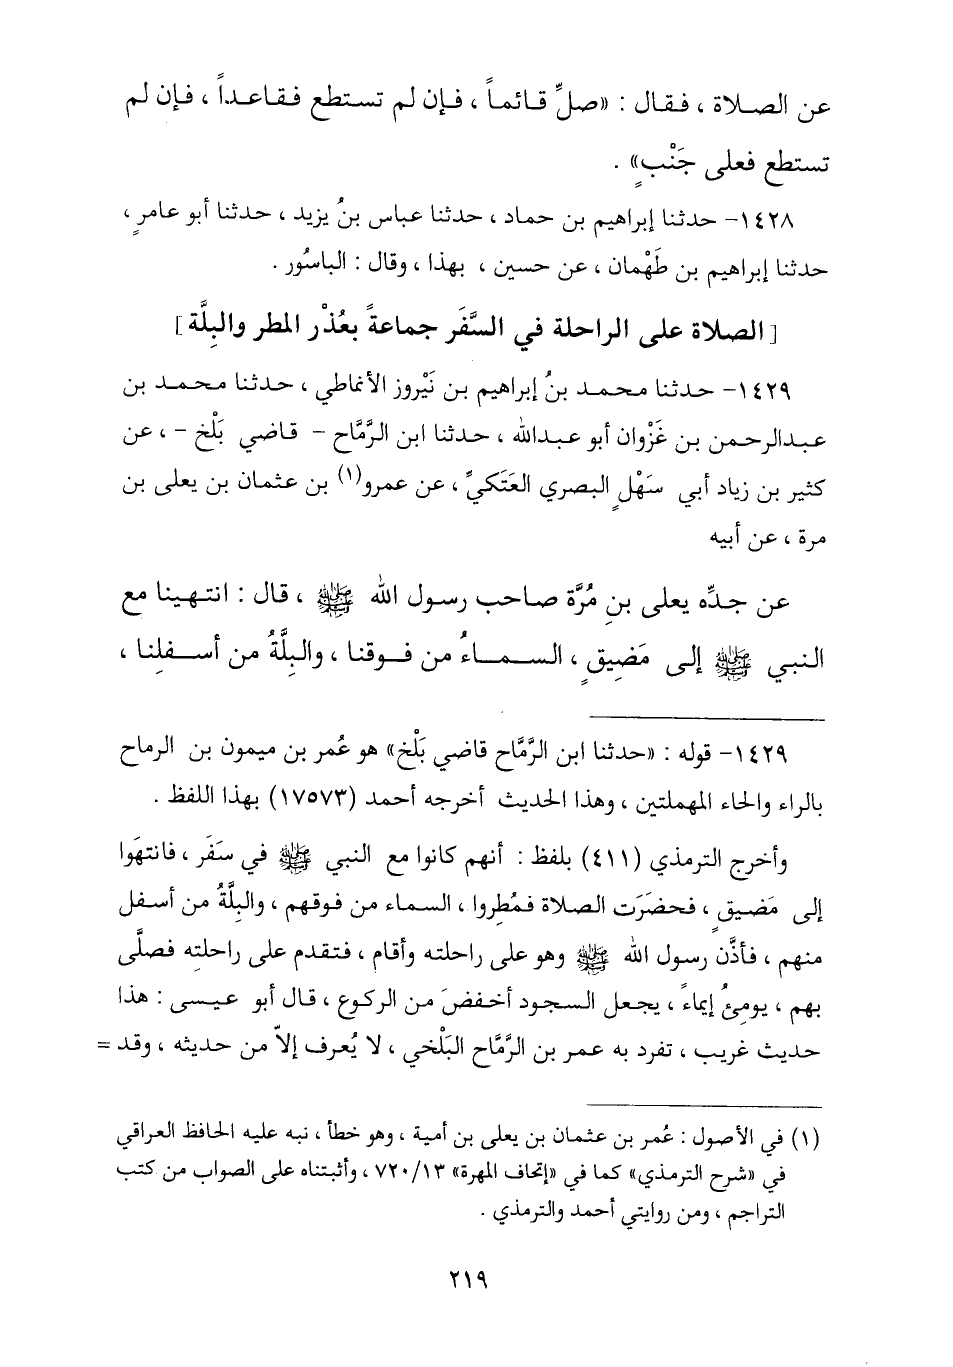 عن الصلاة ، فقال : «صلِّ قائماً ، فإن لم تستطع فقاعداً ، فإن لم
تستطع فعلى جَنْبٍ» .
١٤٢٨- حدثنا إبراهيم بن حماد ، حدثنا عباس بنُ يزيد ، حدثنا أبو عامرٍ ،
حدثنا إبراهيم بن طَهْمان ، عن حسين ، بهذا ، وقال : الباسُور .
[الصلاة على الراحلة في السَّفَر جماعةً بعُذْر المطر والبِلَّة]
١٤٢٩- حدثنا محمد بنُ إبراهيم بن نَيْروز الأنماطي ، حدثنا محمد بن
عبدالرحمن بن غَزْوان أبو عبدالله ، حدثنا ابن الرَّمَّاح - قاضي بَلْخ - ، عن
كثير بن زياد أبي سَهْلٍ البصري العَتَكيِّ ، عن عمرو(١) بن عثمان بن يعلى بن
مرة ، عن أبيه
عن جدِّه يعلى بنِ مُرَّة صاحب رسول الله ﷺ ، قال : انتهينا مع
النبي ﷺ إلى مَضِيقٍ ، السماءُ من فوقنا ، والبِلَّةُ من أسفلِنا ،
١٤٢٩- قوله : «حدثنا ابن الرَّمَّاح قاضي بَلْخ» هو عُمر بن ميمون بن الرماح
بالراء والحاء المهملتين ، وهذا الحديث أخرجه أحمد (١٧٥٧٣) بهذا اللفظ .
وأخرج الترمذي (٤١١) بلفظ : أنهم كانوا مع النبي ﷺ في سَفَر ، فانتهَوا
إلى مَضيقٍ ، فحضَرَت الصلاة فمُطِروا ، السماء من فوقهم ، والبِلَّةُ من أسفل
منهم ، فأذَّن رسول الله ﷺ وهو على راحلته وأقام ، فتقدم على راحلتِه فصلَّى
بهم ، يومِئُ إيماءً ، يجعل السجود أخفضَ من الركوع ، قال أبو عيسى : هذا
حديث غريب ، تفرد به عمر بن الرَّمَّاح البَلْخي ، لا يُعرف إلاّ من حديثه ، وقد =
(١) في الأصول : عُمر بن عثمان بن يعلى بن أمية ، وهو خطأ ، نبه عليه الحافظ العراقي
في «شرح الترمذي» كما في «إتحاف المهرة» ٧٢٠/١٣ ، وأثبتناه على الصواب من كتب
التراجم ، ومن روايتي أحمد والترمذي .
٢١٩